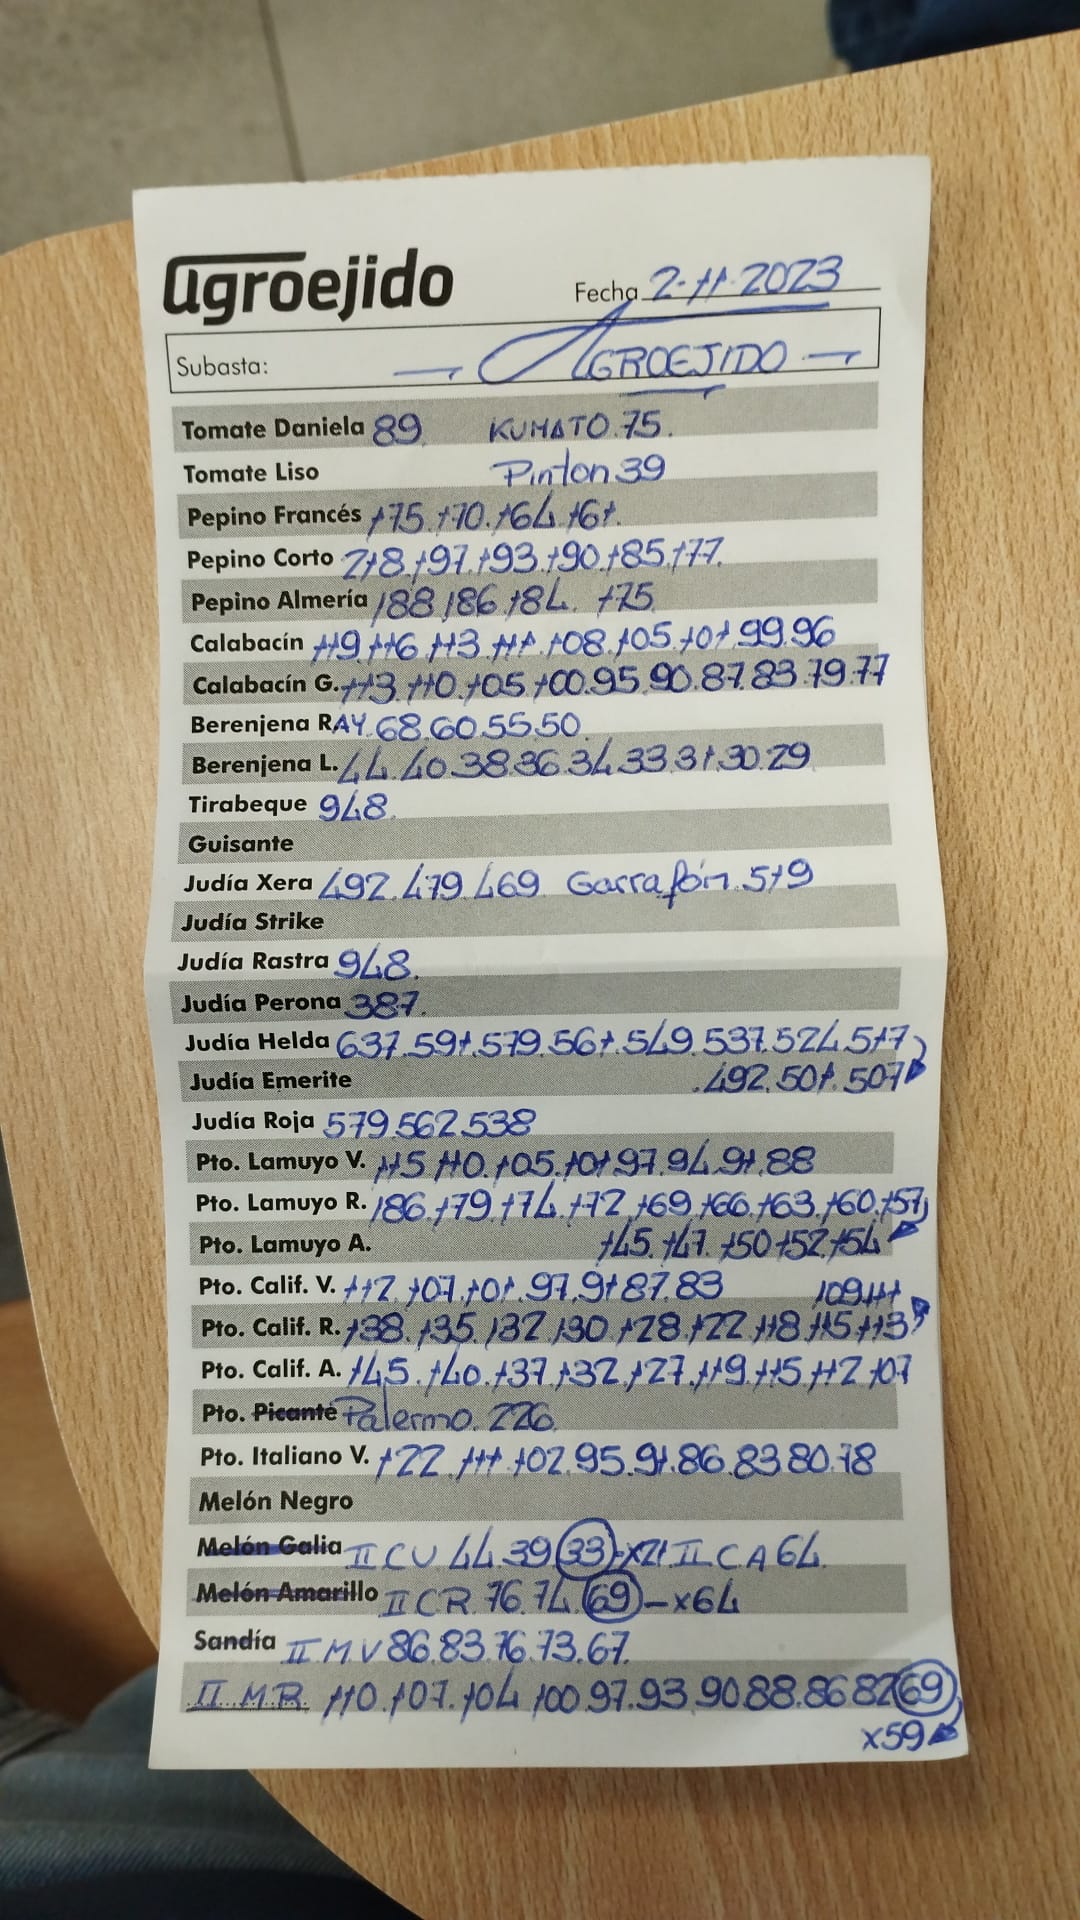 agroejido
Fecha 2-11-2023
Subasta: — AGROEJIDO —
Tomate Daniela 89 KUMATO.75.
Tomate Liso Pinton 39
Pepino Francés 175.170.164.161.
Pepino Corto 218.197.193.190.185.177.
Pepino Almería 188.186.184. 175
Calabacín 119.116.113.111.108.105.101.99.96
Calabacín G. 113.110.105.100.95.90.87.83.79.77
Berenjena RAY. 68.60.55.50
Berenjena L. 44.40.38.36.34.33.31.30.29
Tirabeque 948.
Guisante
Judía Xera 492.479.469 Garrafón.519
Judía Strike
Judía Rastra 948.
Judía Perona 387.
Judía Helda 637.591.579.561.549.537.524.517
Judía Emerite .492.501.507
Judía Roja 579.562.538
Pto. Lamuyo V. 115.110.105.101.97.94.91.88
Pto. Lamuyo R. 186.179.174.172.169.166.163.160.157
Pto. Lamuyo A. 145.147.150.152.154
Pto. Calif. V. 112.107.101.97.91.87.83 109.111
Pto. Calif. R. 138.135.132.130.128.122.118.115.113
Pto. Calif. A. 145.140.137.132.127.119.115.112.107
Pto. Picante Palermo. 226.
Pto. Italiano V. 122.111.102.95.91.86.83.80.78
Melón Negro
Melón Galia II CV 44.39.33-x21 II CA 64.
Melón Amarillo II CR. 76.74.69-x64
Sandía II M.V 86.83.76.73.67.
II.M.R. 110.107.104.100.97.93.90.88.86.82.69
x59